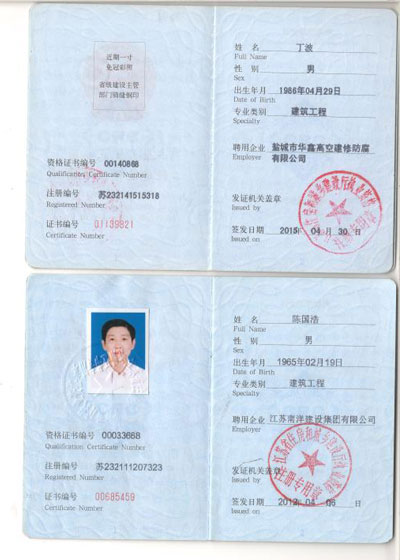 近期一寸
免冠彩照
省级建设主管
部门骑缝钢印
资格证书编号 00140868
Qualification Certificate Number
注册编号 苏232141515318
Registered Number
证书编号 01109821
Certificate Number
姓 名 丁波
Full Name
性 别 男
Sex
出生年月 1986年04月29日
Date of Birth
专业类别 建筑工程
Specialty
聘用企业 盐城市华鑫高空建修防腐
Employer 有限公司
发证机关盖章
Issued by
签发日期 2015年 04月 30日
Issued on
资格证书编号 00033688
Qualification Certificate Number
注册编号 苏232111207323
Registered Number
证书编号 00685459
Certificate Number
姓 名 陈国浩
Full Name
性 别 男
Sex
出生年月 1965年02月19日
Date of Birth
专业类别 建筑工程
Specialty
聘用企业 江苏南洋建设集团有限公司
Employer
江苏省住房和城乡建设厅
注册专用章
发证机关盖章
Issued by
签发日期
Issued on